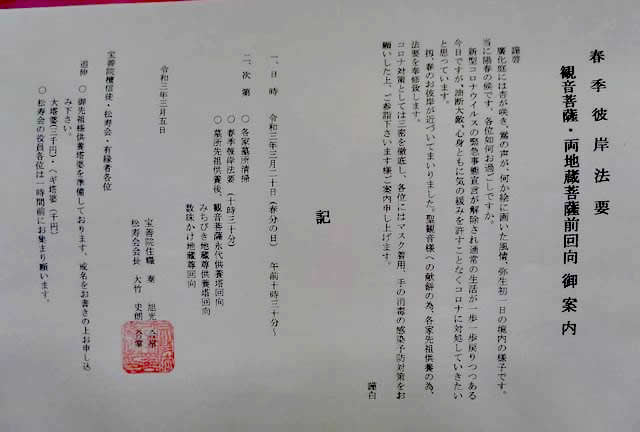 春季彼岸法要
観音菩薩・両地蔵菩薩前回向 御案内
謹啓
廣化庭には杏が咲き、鶯の声が、何か絵に画いた風情、弥生初一日の境内の様子です。
当に陽春の候です。各位如何お過ごしですか。
新型コロナウイルスの緊急事態宣言が解除され通常の生活が一歩一歩戻りつつある
今日ですが、油断大敵、心身ともに気の緩みを許すことなくコロナに対処していきたい
と思っています。
扨、春のお彼岸が近づいてまいりました。聖観音様への献餅の為、各家先祖供養の為、
法要を奉修致します。
コロナ対策としては三密を徹底し、各位にはマスク着用、手の消毒の感染予防対策をお
願いした上、ご参詣下さいます様ご案内申し上げます。
謹白
記
一、日 時 令和三年三月二十日(春分の日) 午前十時三十分~
二、次 第 〇 各家墓所清掃
〇 春季彼岸法要(十時三十分)
〇 墓所先祖供養後、観音菩薩永代供養塔回向
みちびき地蔵尊供養塔回向
数珠かけ地蔵尊回向
令和三年三月五日
宝善院住職 旭光 合掌
松寿会会長 大竹 史朗 合掌
宝善院檀信徒・松寿会・有縁者各位
追伸 〇 御先祖様供養塔婆を準備しております、戒名をお書きの上お申し込
み下さい。
大塔婆(三千円)・ヘギ塔婆(千円)
〇 松寿会の役員各位は一時間前にお集まり願います。